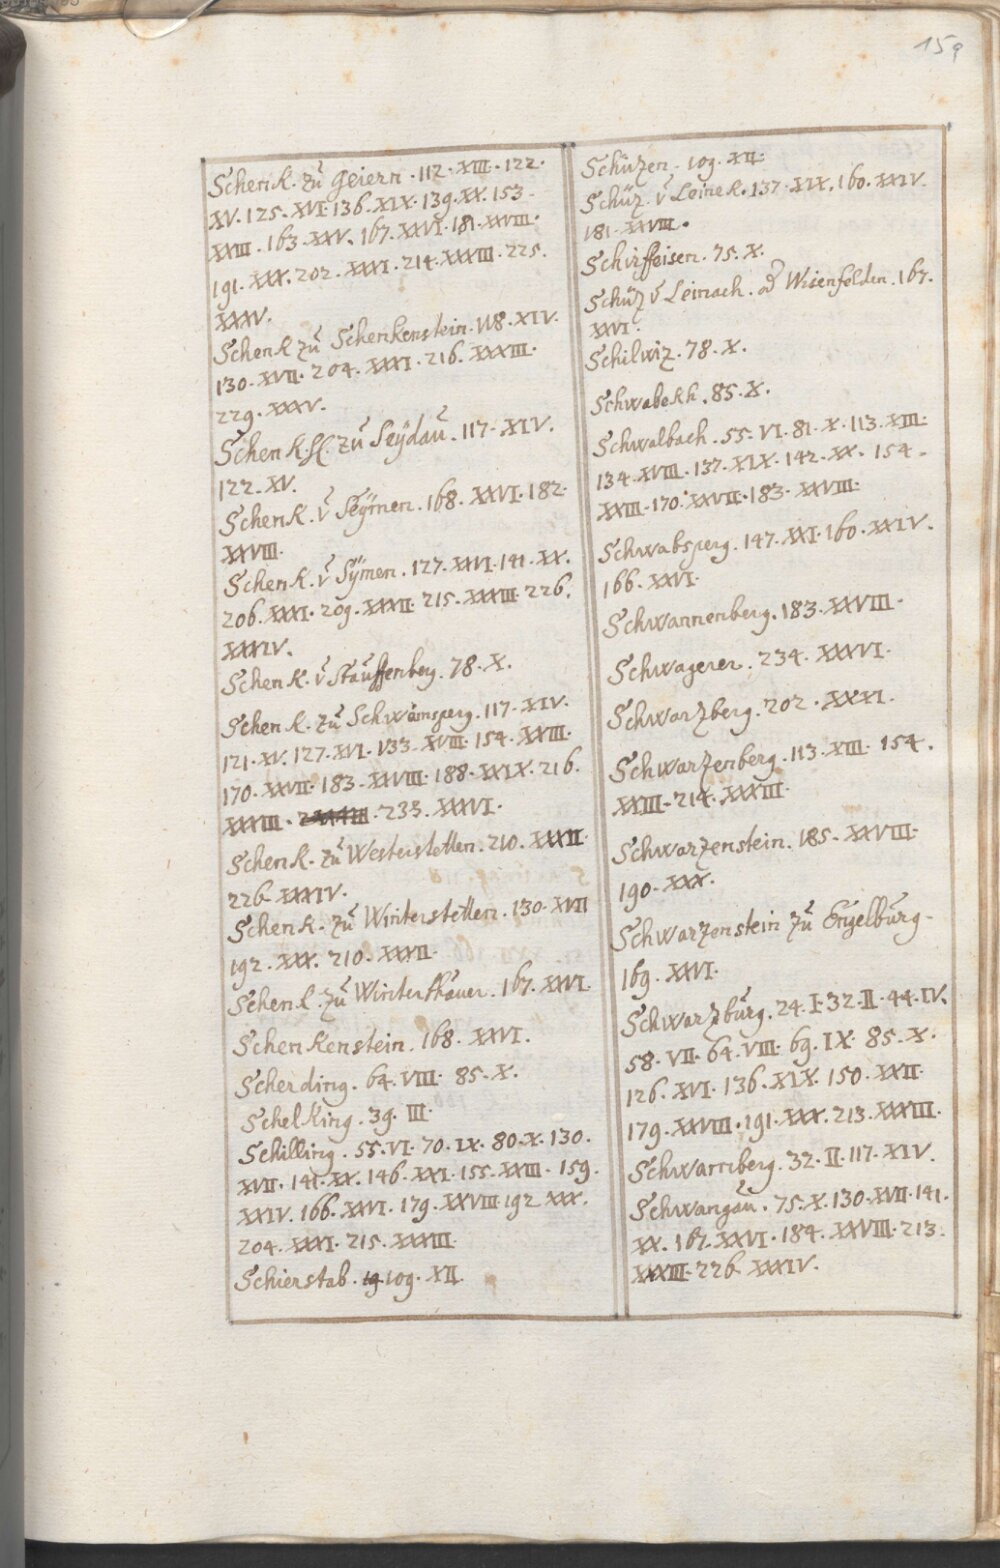 159
Schenk. zu Geiern. 112. XIII. 122.
XV. 125. XVI. 136. XIX. 139. XX. 153.
XXIII. 163. XXV. 167. XXVI. 181. XXVIII.
191. XXX. 202. XXXI. 214. XXXIII. 225.
XXXV.
Schenk zu Schenkenstein. 118. XIV.
130. XVII. 204. XXXI. 216. XXXIII.
229. XXXV.
Schenk. zu Seÿdau. 117. XIV.
122. XV.
Schenk. v Seÿmen. 168. XXVI. 182.
XXVIII.
Schenk. v Sÿmen. 127. XVI. 141. XX.
206. XXXI. 209. XXXII. 215. XXXIII. 226.
XXXIV.
Schenk. v Stauffenberg. 78. X.
Schenk. zu Schwainsperg. 117. XIV.
121. XV. 127. XVI. 133. XVIII. 154. XXIII.
170. XXVII. 183. XXVIII. 188. XXIX. 216.
XXXIII. 233. XXXVI.
Schenk. zu Westerstetten. 210. XXXII
226. XXXIV.
Schenk. zu Winterstetten. 130. XVII
192. XXX. 210. XXXII.
Schenk. zu Winterstauer. 167. XXVI.
Schenkenstein. 168. XXVI.
Scherding. 64. VIII. 85. X.
Schelking. 39. III.
Schilling. 55. VI. 70. IX. 80. X. 130.
XVII. 141. XX. 146. XXI. 155. XXIII. 159.
XXIV. 166. XXVI. 179. XXVIII 192 XXX.
204. XXXI. 215. XXXIII.
Schierstab. 109. XII.
Schüzen. 109. XII.
Schüz. v Leinek. 137. XIX. 160. XXIV.
181. XXVIII.
Schirffeisen. 75. X.
Schüz v Leinach. od Wisenfelden. 167.
XXVI.
Schilwiz. 78. X.
Schwabekh. 85. X.
Schwalbach. 55. VI. 81. X. 113. XIII.
134. XVIII. 137. XIX. 142. XX. 154.
XXIII. 170. XXVII. 183. XXVIII.
Schwabsperg. 147. XXI. 160. XXIV.
166. XXVI.
Schwannenberg. 183. XXVIII.
Schwagerer. 234. XXXVI.
Schwarzberg. 202. XXXI.
Schwarzenberg. 113. XIII. 154.
XXIII. 214. XXXIII.
Schwarzenstein. 185. XXVIII.
190. XXX.
Schwarzenstein zu Engelburg.
169. XXVI.
Schwarzburg. 24. I. 32. II. 44. IV.
58. VII. 64. VIII. 69. IX. 85. X.
126. XVI. 136. XIX. 150. XXII.
179. XXVIII. 191. XXX. 213. XXXIII.
Schwarnberg. 32. II. 117. XIV.
Schwangau. 75. X. 130. XVII. 141.
XX. 167. XXVI. 184. XXVIII. 213.
XXXIII. 226. XXXIV.